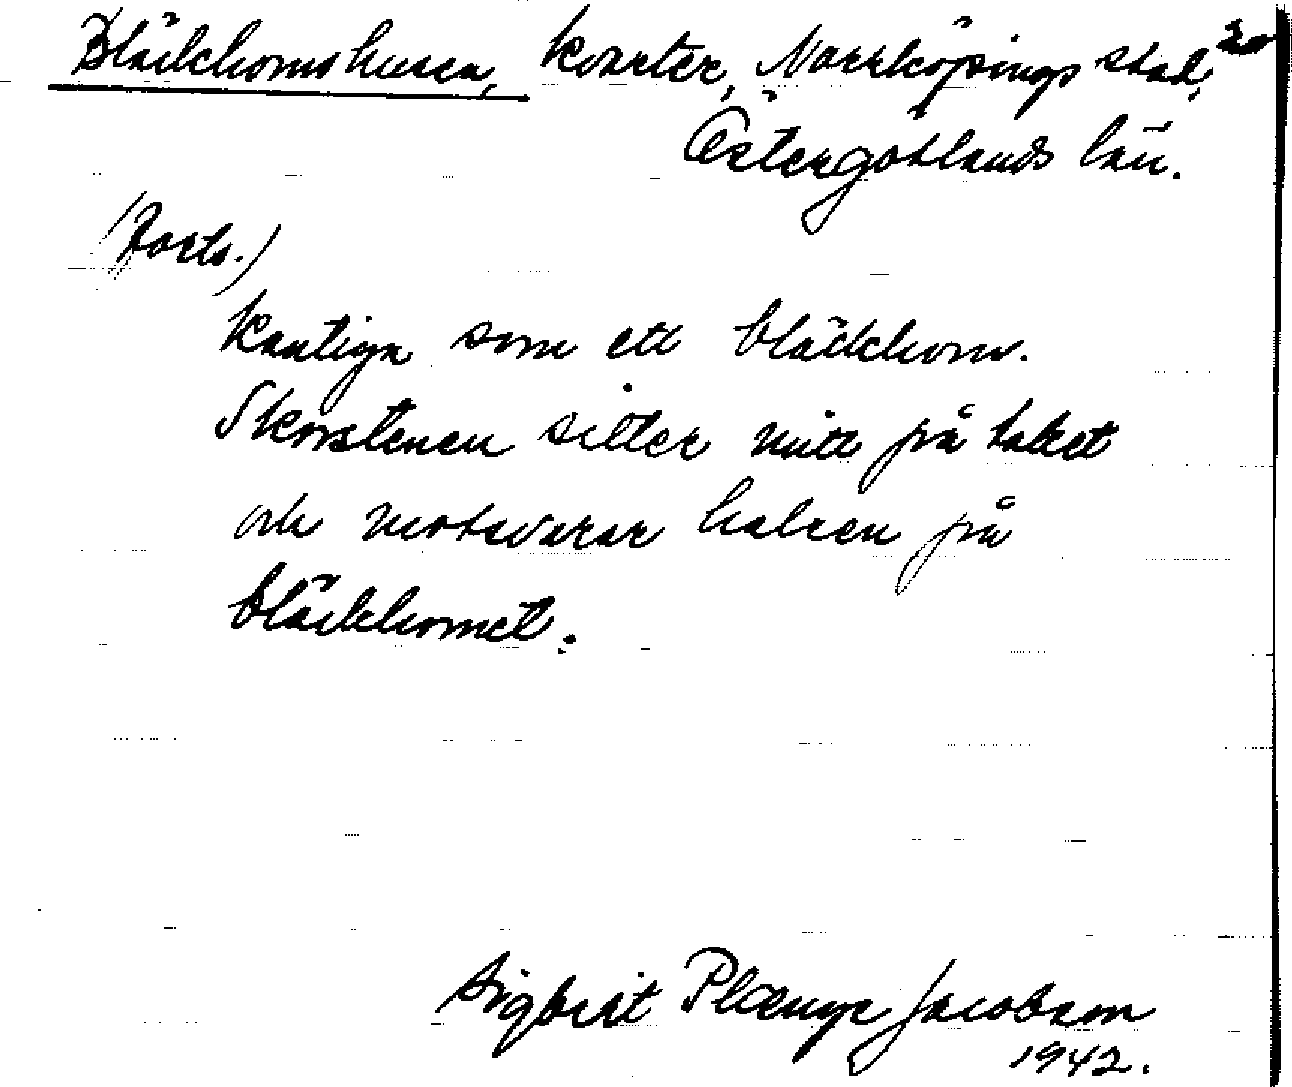 Bläckhornshusen, kvarter, Norrköpings stad,
Östergötlands län.
(Forts.)
kantiga som ett bläckhorn.
Skorstenen sitter mitt på taket
och motsvarar halsen på
bläckhornet.
Sigbrit Plænge Jacobson
1942.